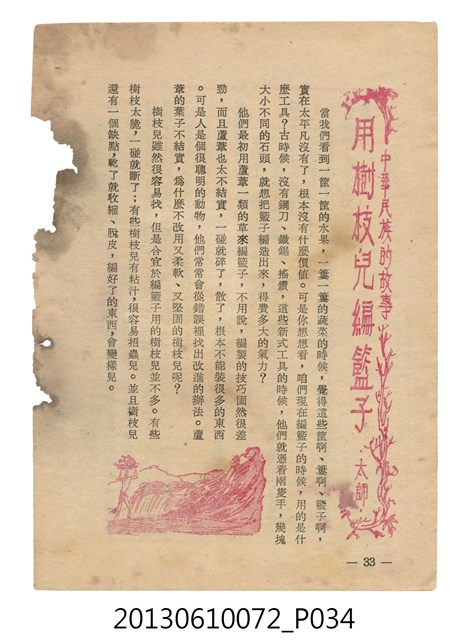 中華民族的故事
用樹枝兒編籃子
·太師·
當我們看到一筐一筐的水果，一簍一簍的蔬菜的時候，覺得這些筐啊、簍啊、籃子啊，
實在太平凡沒有了，根本沒有什麼價值。可是你想想看，咱們現在編籃子的時候，用的是什
麼工具？古時候，沒有鋼刀、鐵鋸、搖鑽，這些新式工具的時候，他們就憑着兩隻手，幾塊
大小不同的石頭，就想把籃子編造出來，得費多大的氣力？
他們最初用蘆葦一類的草來編籃子，不用說，編製的技巧固然很差
勁，而且蘆葦也太不結實，一碰就碎了，散了，根本不能裝很多的東西
。可是人是個很聰明的動物，他們常常會從錯誤裡找出改進的辦法。蘆
葦的葉子不結實，爲什麼不改用又柔軟、又堅固的樹枝兒呢？
樹枝兒雖然很容易找，但是合宜於編籃子用的樹枝兒並不多。有些
樹枝太脆，一碰就斷了；有些樹枝兒有粘汁，很容易招蟲兒。並且樹枝兒
還有一個缺點，乾了就收縮、脫皮，編好了的東西，會變樣兒。
— 33 —
20130610072_P034